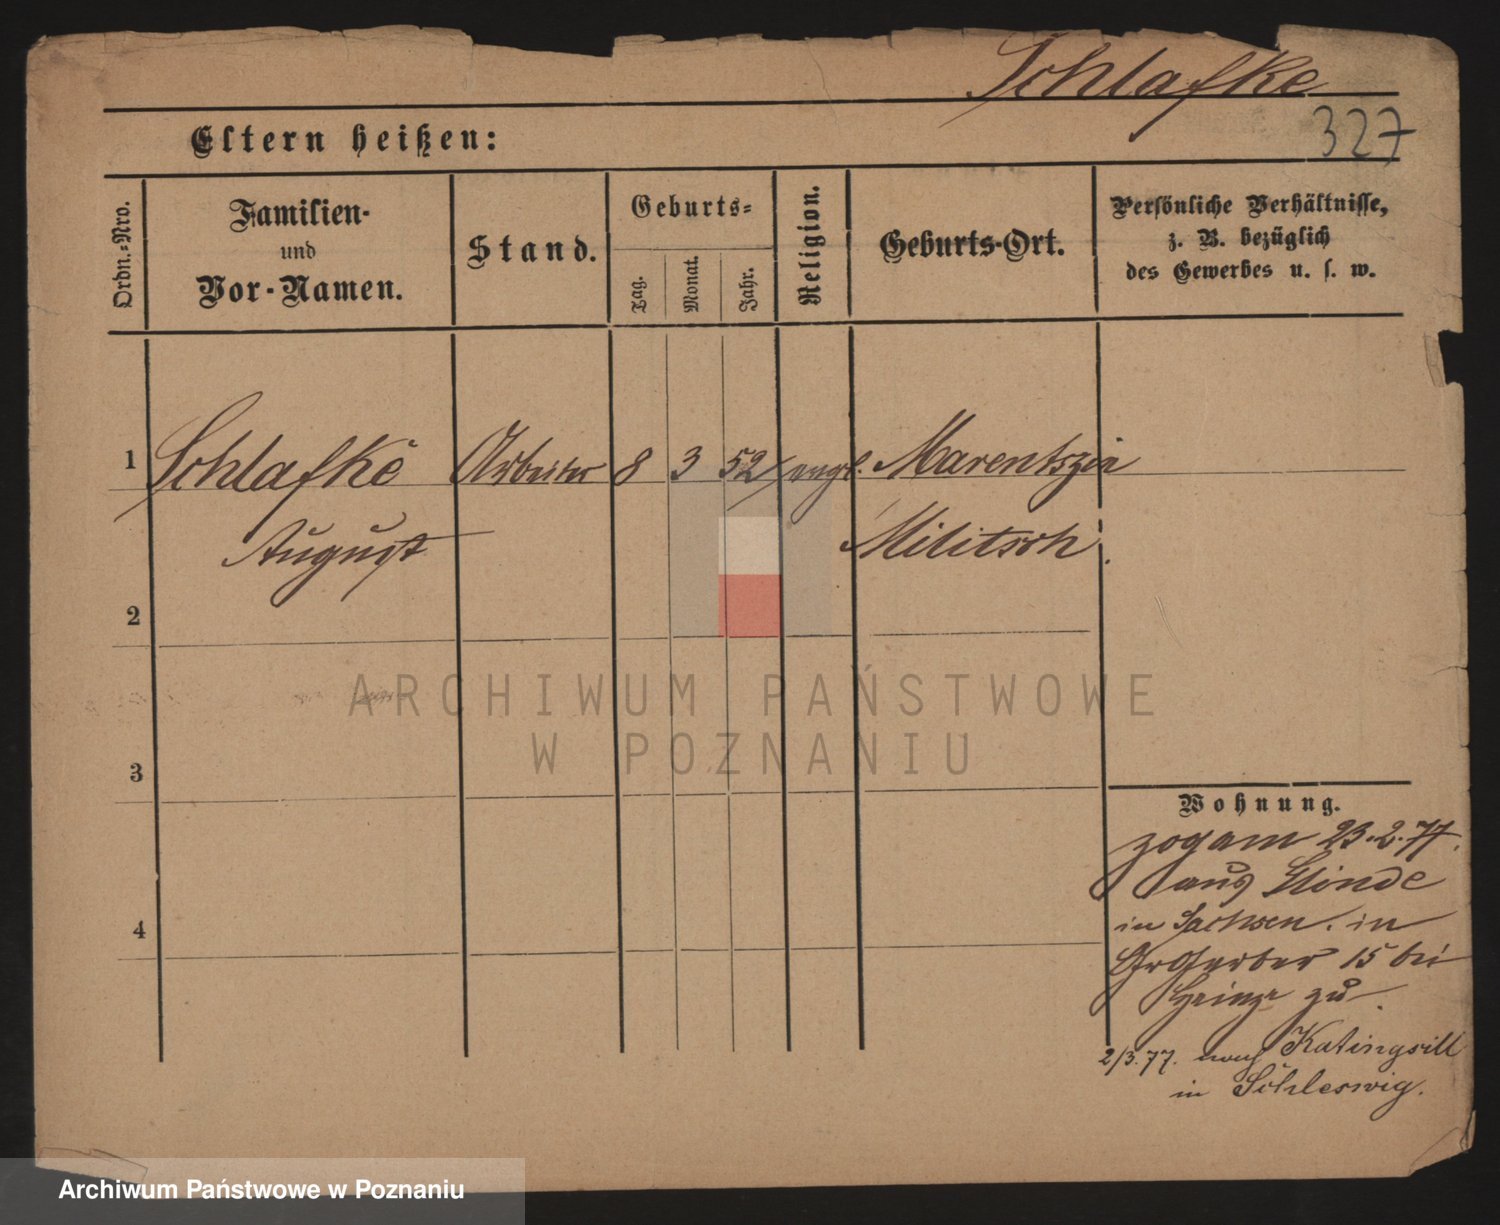 Schlafke
327
Eltern heißen:
Ordn.-Nro.
Familien-
und
Vor-Namen.
Stand.
Geburts-
Tag.
Monat.
Jahr.
Religion.
Geburts-Ort.
Persönliche Verhältnisse,
z. B. bezüglich
des Gewerbes u. s. w.
1 Schlafke Arbeiter 8 3 52 evgl. Marentschin
August Militsch
2
3
4
ARCHIWUM PAŃSTWOWE
W POZNANIU
Wohnung.
zog am 23.2.77.
aus Glinde
in Sachsen. in
GrGerber 15 bei
Heinze zu
2/3.77. nach Katingsill
in Schleswig.
Archiwum Państwowe w Poznaniu